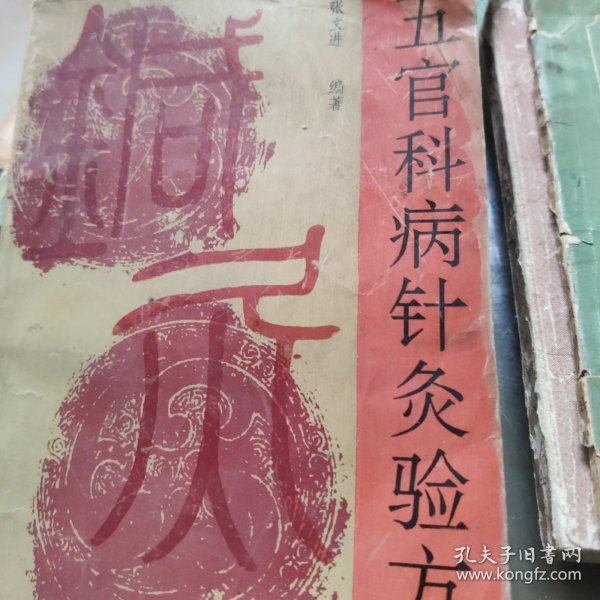 五官科病针灸验方
张文进 编著
孔夫子旧书网
www.kongfz.com